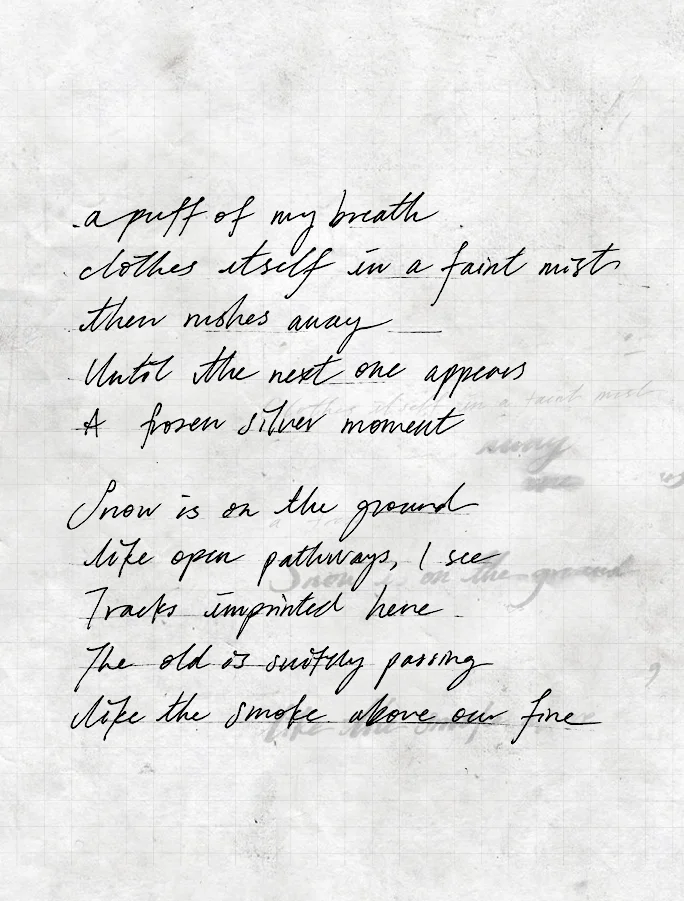 a puff of my breath
clothes itself in a faint mist
then rushes away
Until the next one appears
A frozen silver moment
Snow is on the ground
like open pathways, I see
Tracks imprinted here
The old is swiftly passing
like the smoke above our fire